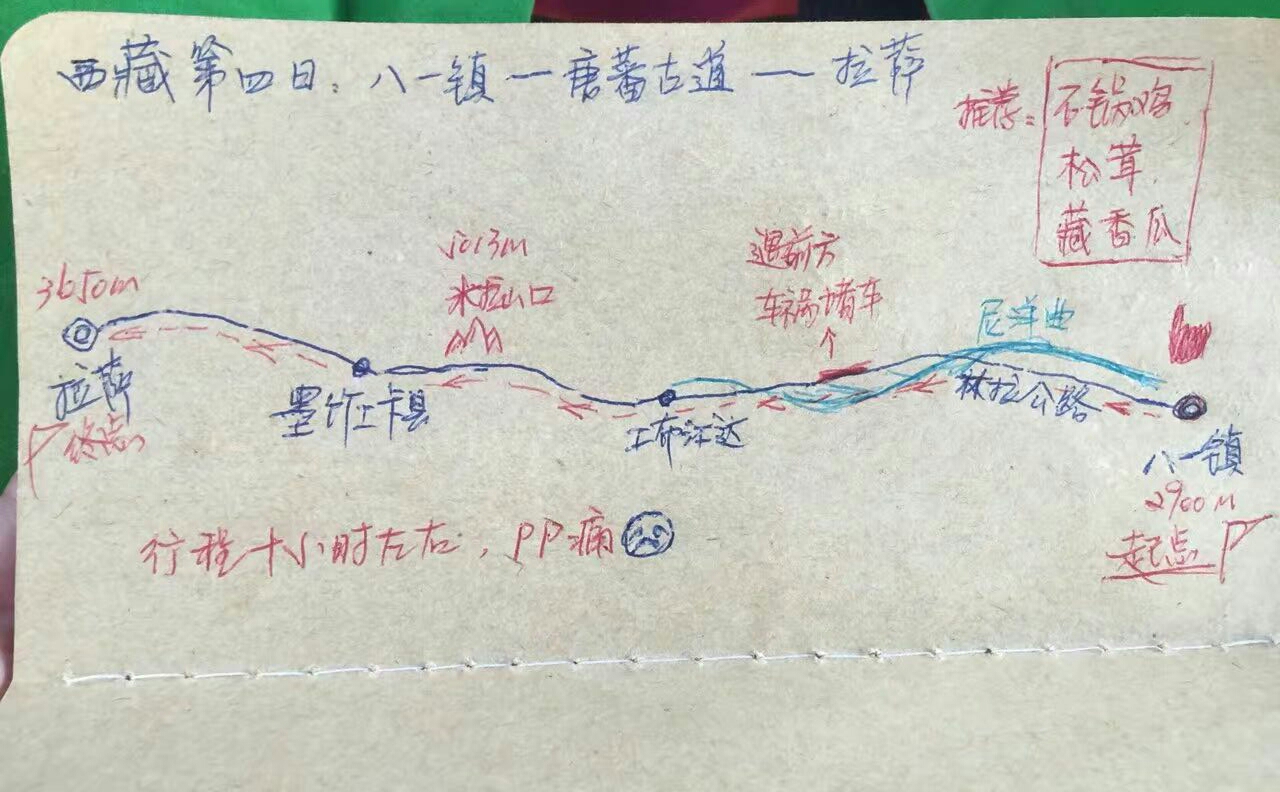 西藏第四日：八一镇—唐蕃古道—拉萨
推荐：
石锅鸡
松茸
藏香瓜
3650m
拉萨
终点
墨竹工卡县
5013m
米拉山口
工布江达
遇前方
车祸堵车
尼洋曲
林拉公路
八一镇
2900M
起点
行程十小时左右，PP痛